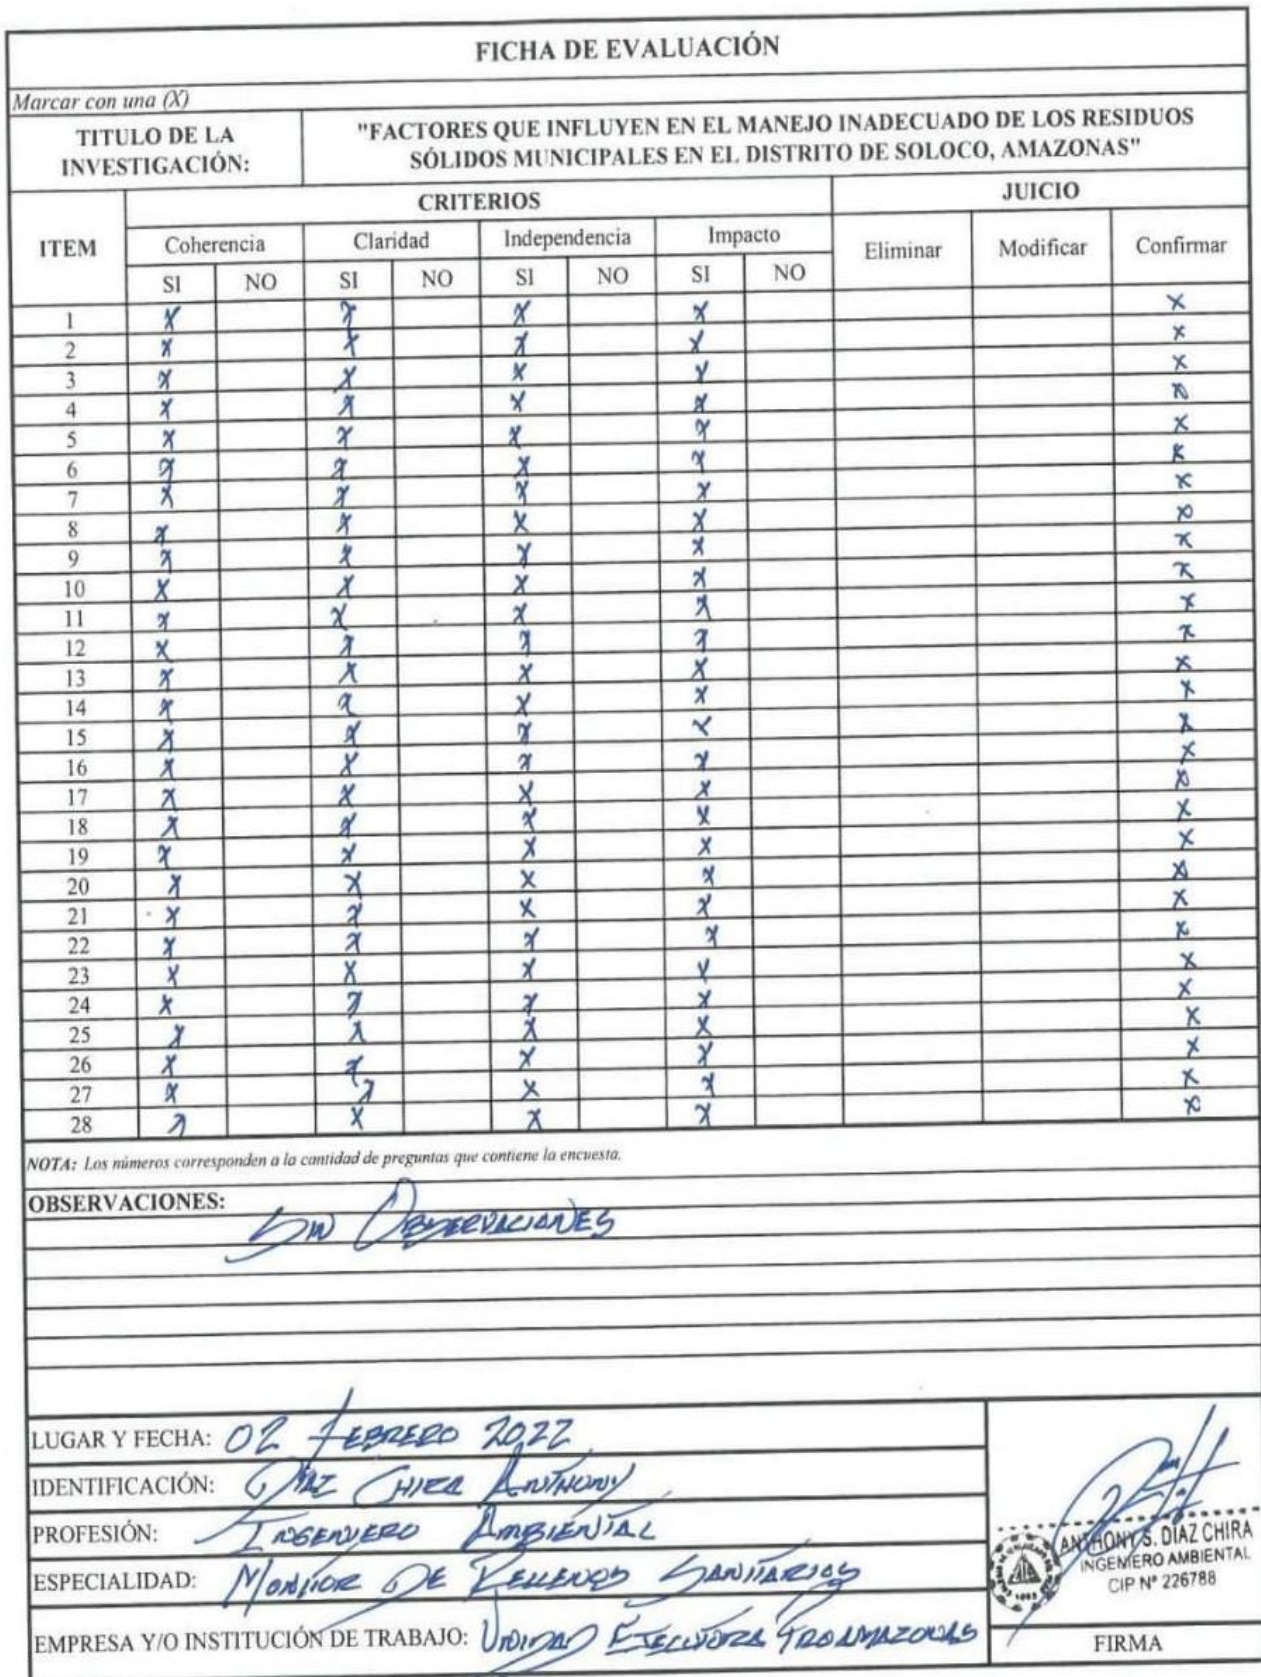 FICHA DE EVALUACIÓN
Marcar con una (X)
TITULO DE LA INVESTIGACIÓN: "FACTORES QUE INFLUYEN EN EL MANEJO INADECUADO DE LOS RESIDUOS SÓLIDOS MUNICIPALES EN EL DISTRITO DE SOLOCO, AMAZONAS"
ITEM CRITERIOS JUICIO
Coherencia Claridad Independencia Impacto Eliminar Modificar Confirmar
SI NO SI NO SI NO SI NO
1 X X X X X
2 X X X X X
3 X X X X X
4 X X X X X
5 X X X X X
6 X X X X X
7 X X X X X
8 X X X X X
9 X X X X X
10 X X X X X
11 X X X X X
12 X X X X X
13 X X X X X
14 X X X X X
15 X X X X X
16 X X X X X
17 X X X X X
18 X X X X X
19 X X X X X
20 X X X X X
21 X X X X X
22 X X X X X
23 X X X X X
24 X X X X X
25 X X X X X
26 X X X X X
27 X X X X X
28 X X X X X
NOTA: Los números corresponden a la cantidad de preguntas que contiene la encuesta.
OBSERVACIONES:
SIN OBSERVACIONES
LUGAR Y FECHA: 02 FEBRERO 2022
IDENTIFICACIÓN: DIAZ CHIRA ANTHONY
PROFESIÓN: INGENIERO AMBIENTAL
ESPECIALIDAD: MONITOR DE RELLENOS SANITARIOS
EMPRESA Y/O INSTITUCIÓN DE TRABAJO: UNIDAD EJECUTORA PROAMAZONAS
ANTHONY S. DIAZ CHIRA
INGENIERO AMBIENTAL
CIP Nº 226788
FIRMA